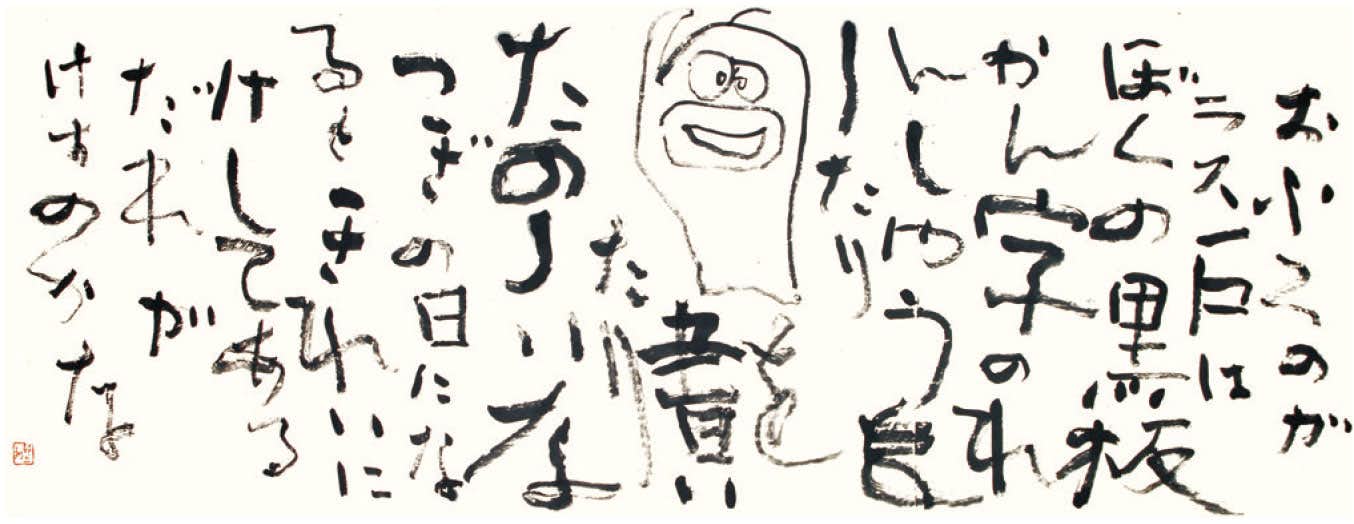 おふろのが
ラス戸は
ぼくの黒板
かん字のれ
んしゆう
したり
を
書い
たり
たのしいな
つぎの日にな
るときれいに
けしてある
だれが
けすのかな